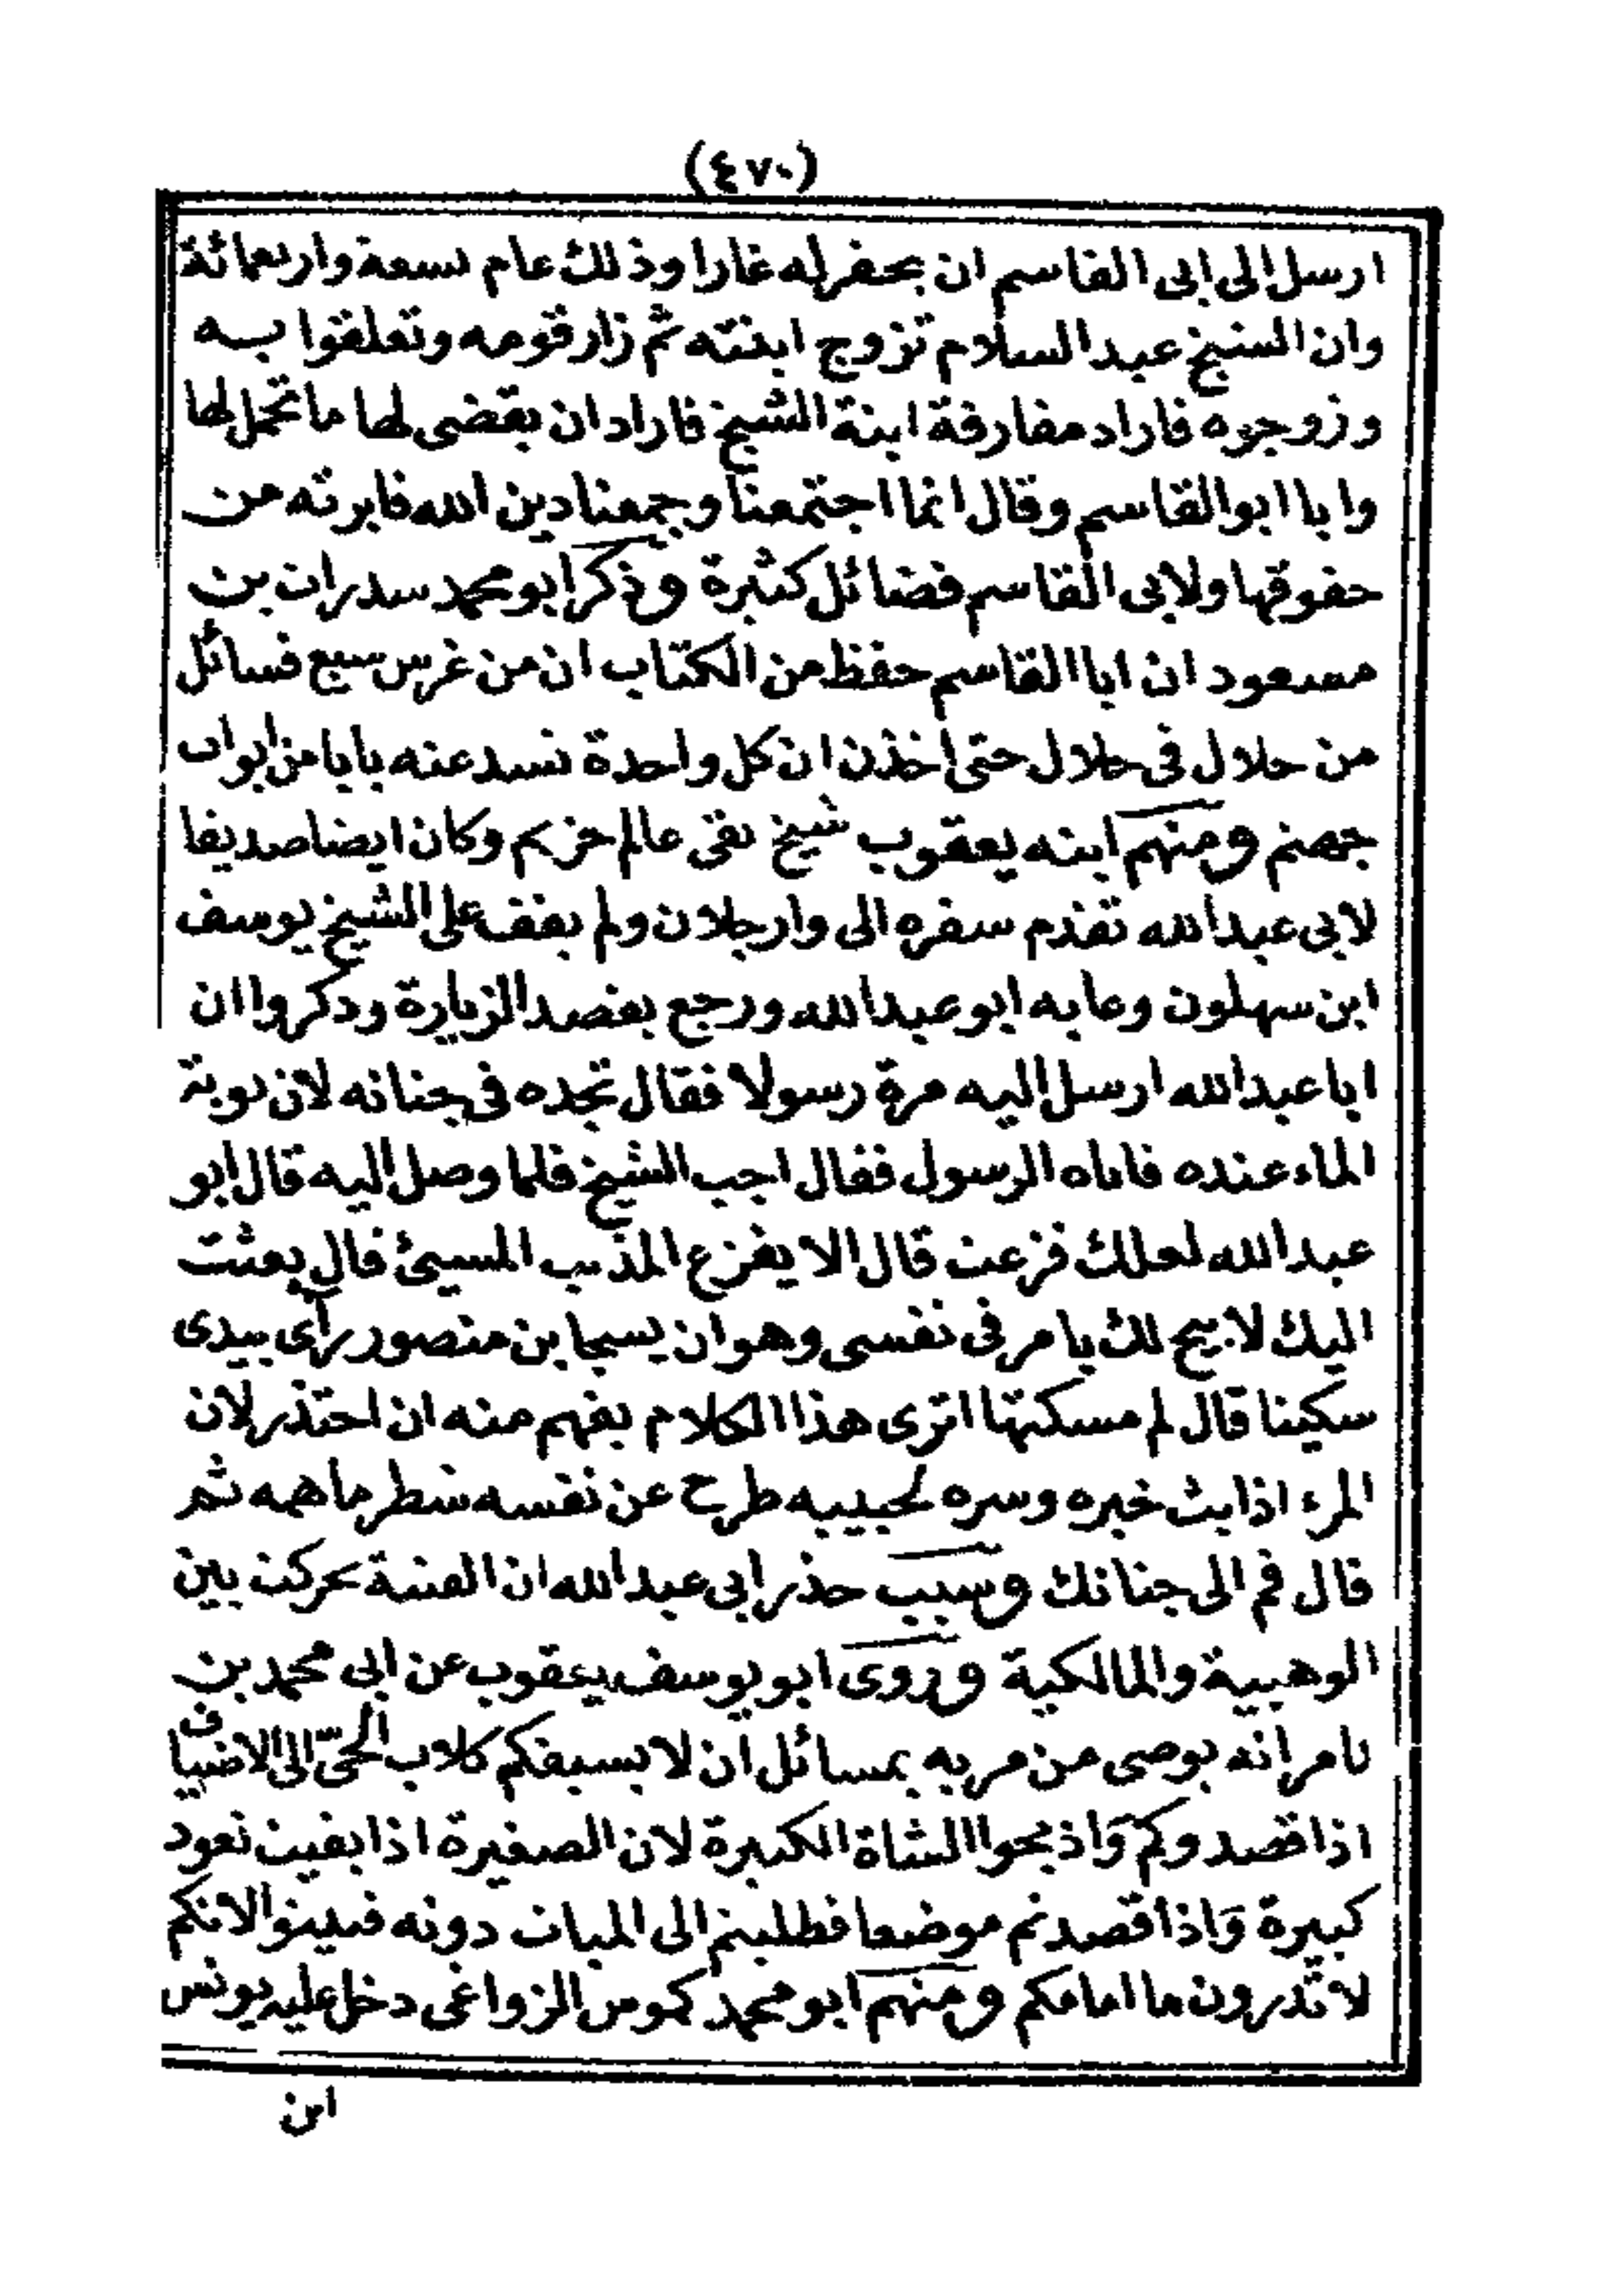 (٤٧٠)
ارسل الى ابى القاسم ان يحفر له غارا وذلك عام تسعة واربعمائة
وان الشيخ عبد السلام تزوج ابنته ثم زار قومه وتعلقوا به
وزوجوه فاراد مفارقة ابنة الشيخ فاراد ان يقضى لها ما تحمل لها
وابا ابو القاسم وقال انما اجتمعنا وجمعنا دين الله فابرته من
حقوقها ولابى القاسم فضائل كثيرة وذكر ابو محمد سدرات بن
مسعود ان ابا القاسم حفظ من الكتاب ان من غرس سبع فسائل
من حلال فى حلال حتى اخذن ان كل واحدة تسد عنه بابا من ابواب
جهنم ومنهم ابنه يعقوب شيخ تقى عالم حزيم وكان ايضا صديقا
لابى عبد الله تقدم سفره الى وارجلان ولم يقف على الشيخ يوسف
ابن سهلون وعابه ابو عبد الله ورجع بقصد الزيارة وذكروا ان
ابا عبد الله ارسل اليه مرة رسولا فقال تجده فى جنانه لان نوبة
الماء عنده فاتاه الرسول فقال اجب الشيخ فلما وصل اليه قال ابو
عبد الله لعلك فزعت قال الا يفزع المذنب المسيئ قال بعثت
اليك لابيح لك بامر فى نفسى وهو ان يسجا بن منصور رأى بيدى
سكينا قال لم مسكتها اترى هذا الكلام يفهم منه ان احتذر لان
المرء اذا بث خبره وسره لحبيبه طرح عن نفسه شطر ما همه ثم
قال قم الى جنانك وسبب حذر ابى عبد الله ان الفتنة تحركت بين
الوهبية والمالكية وروى ابو يوسف يعقوب عن ابى محمد بن
نامر انه يوصى من مر به بمسائل ان لا يسبقكم كلاب الحىّ الى الاضياف
اذا قصدوكم وَاذبحوا الشاة الكبيرة لان الصغيرة اذا بقيت تعود
كبيرة وَاذا قصدتم موضعا فطلبتم الى المبات دونه فبيتوا لانكم
لا تدرون ما امامكم ومنهم ابو محمد كموس الزواغى دخل عليه يونس
ابن